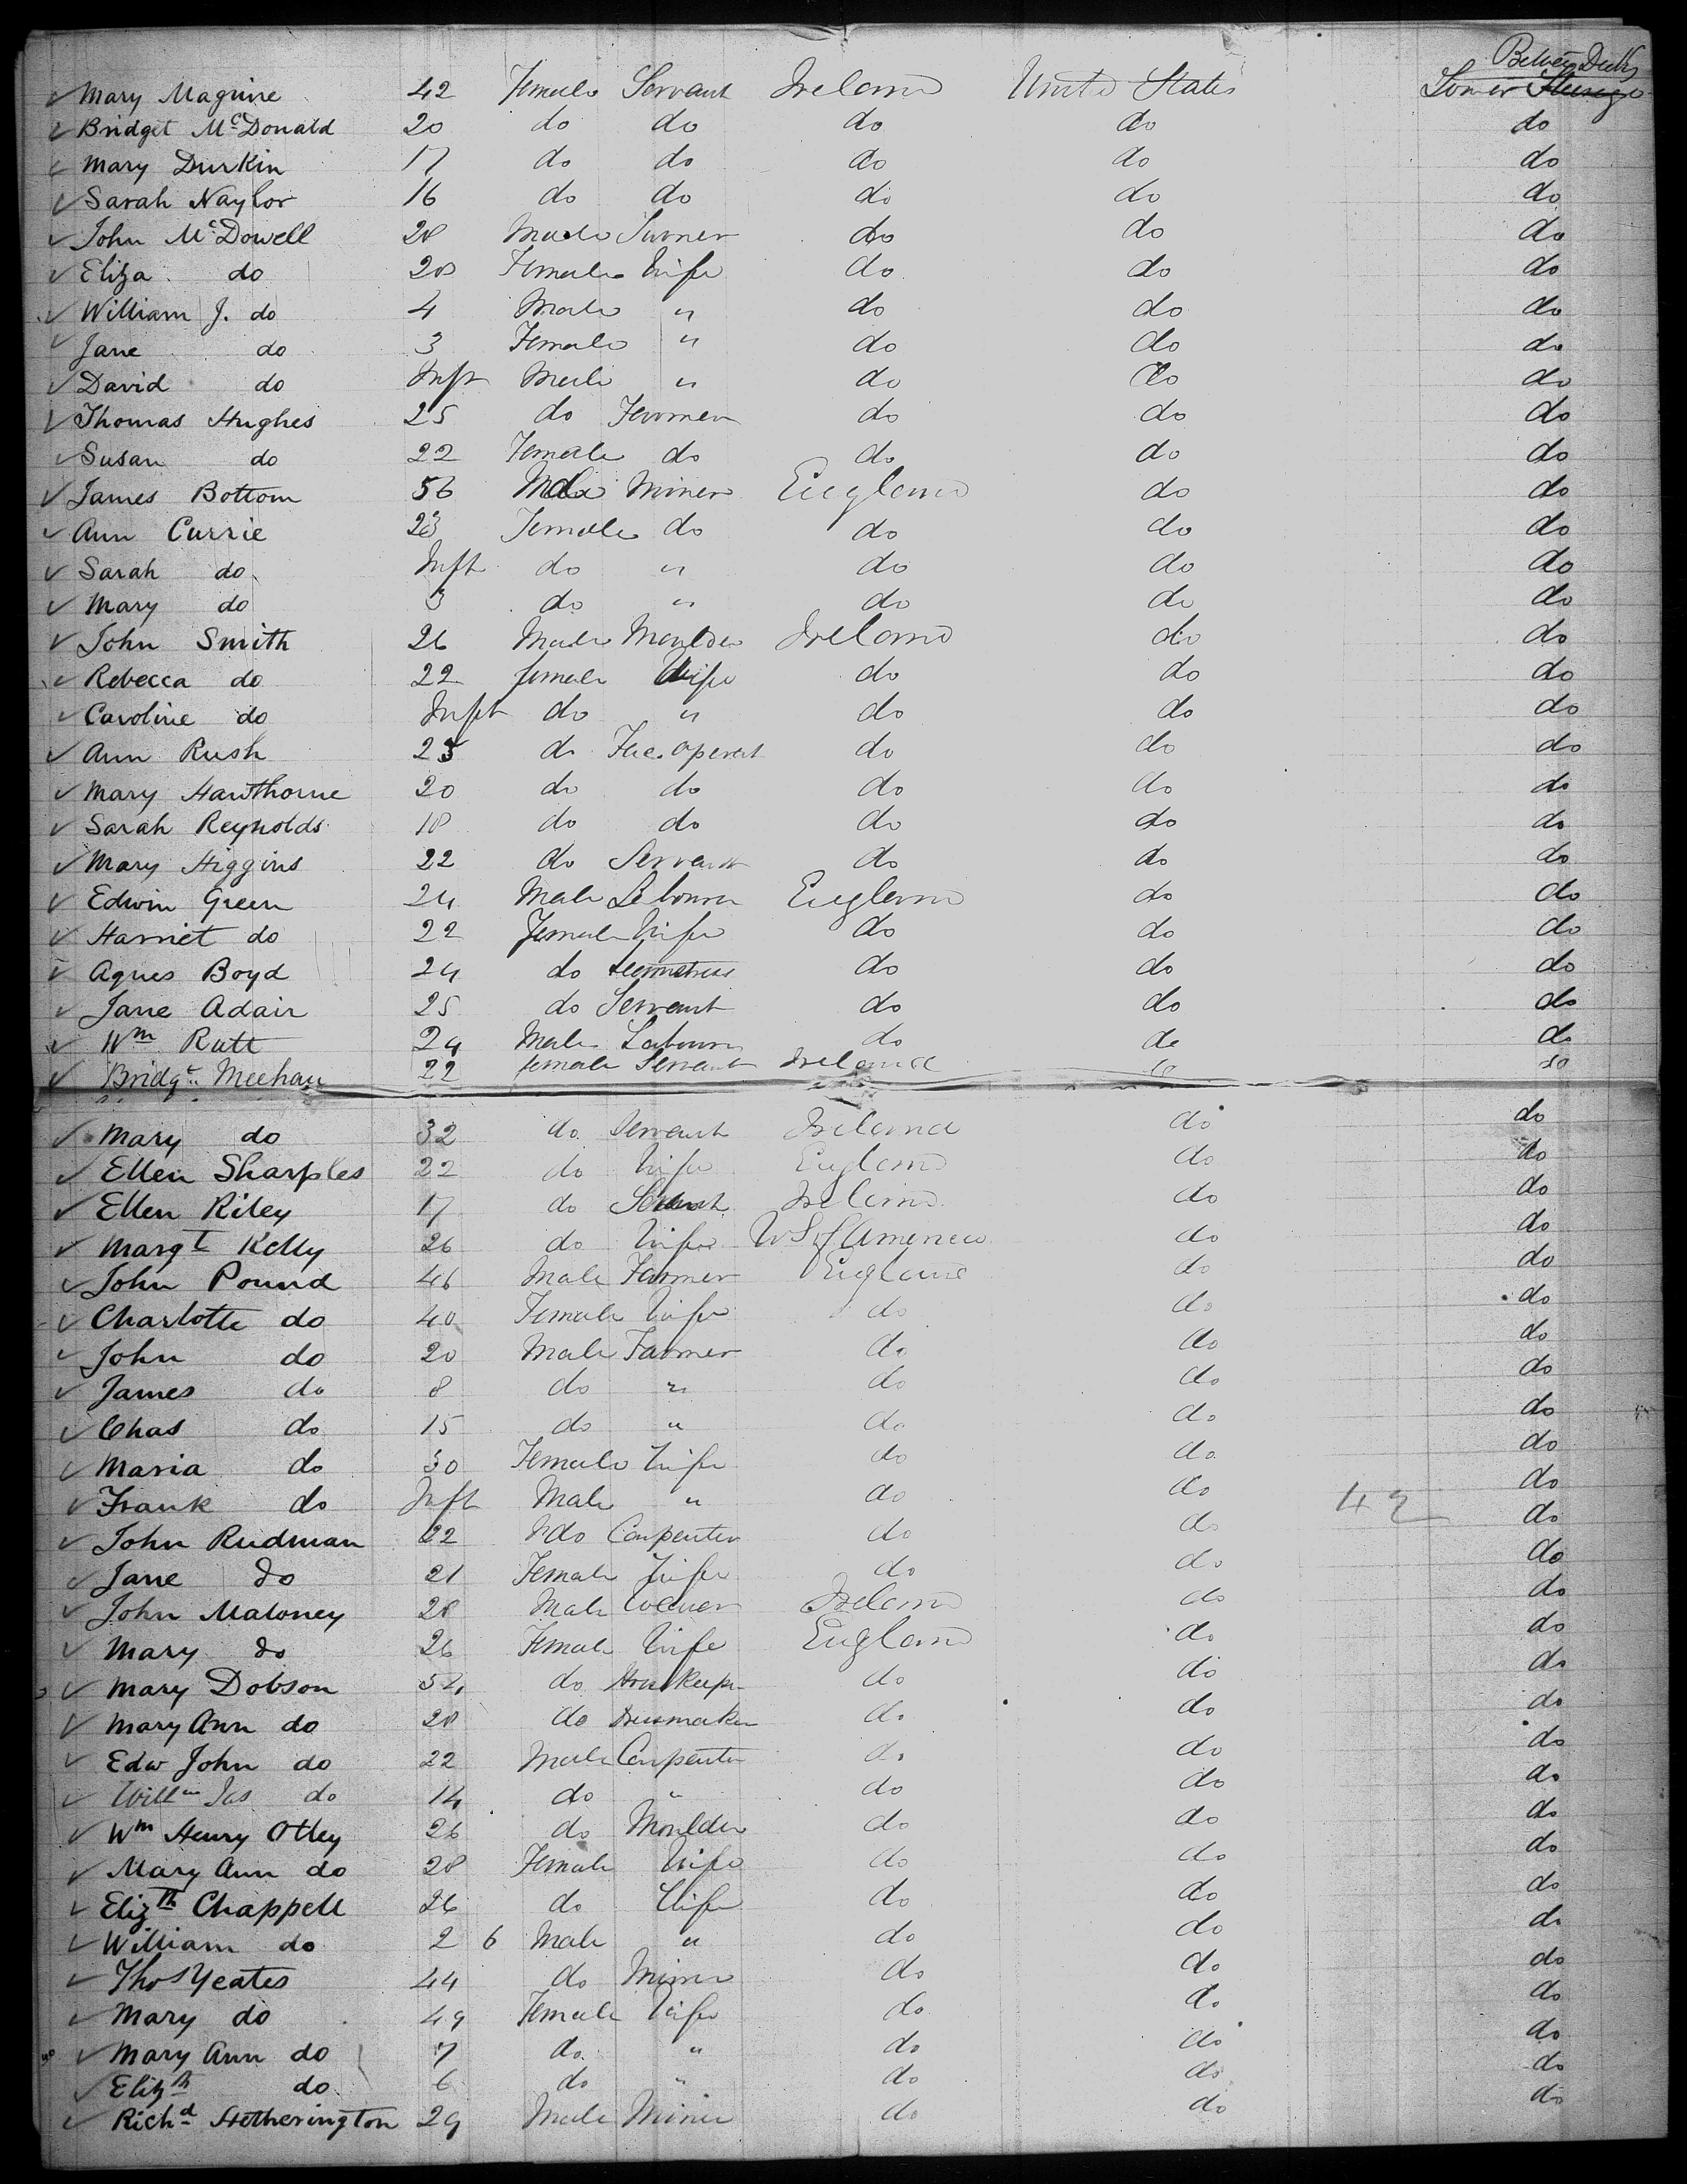 Between Decks
Mary Maguire 42 Female Servant Ireland United States Lower Steerage
Bridget McDonald 20 do do do do do
Mary Durkin 17 do do do do do
Sarah Naylor 16 do do do do do
John McDowell 28 Male do do do
Eliza do 28 Female Wife do do do
William J. do 4 Male " do do do
Jane do 3 Female " do do do
David do Inft Male " do do do
Thomas Hughes 25 do Farmer do do do
Susan do 22 Female do do do do
James Bottom 56 Male Miner England do do
Ann Currie 23 Female do do do do
Sarah do Inft do " do do do
Mary do 3 do " do do do
John Smith 26 Male Moulder Ireland do do
Rebecca do 22 female Wife do do do
Caroline do Inft do " do do do
Ann Rush 25 do Fac. Operat do do do
Mary Hawthorne 20 do do do do do
Sarah Reynolds 18 do do do do do
Mary Higgins 22 do Servant do do do
Edwin Green 24 Male Labourer England do do
Harriet do 22 Female Wife do do do
Agnes Boyd 24 do Seamstress do do do
Jane Adair 25 do Servant do do do
Wm Rutt 24 Male Labourer do do do
Bridgt Meehan 22 female Servant Ireland do do
Mary do 32 do Servant Ireland do do
Ellen Sharples 22 do Wife England do do
Ellen Riley 17 do Servant Ireland do do
Margt Kelly 26 do Wife U S of America do do
John Pound 46 Male Farmer England do do
Charlotte do 40 Female Wife do do do
John do 20 Male Farmer do do do
James do 8 do " do do do
Chas do 15 do " do do do
Maria do 30 Female Wife do do do
Frank do Inft Male " do do 42 do
John Rudman 22 do Carpenter do do do
Jane do 21 Female Wife do do do
John Maloney 28 Male Weaver Ireland do do
Mary do 26 Female Wife England do do
Mary Dobson 54 do Housekeepr do do do
Mary Ann do 28 do Dressmaker do do do
Edw John do 22 Male Carpenter do do do
Willm Jas do 14 do " do do do
Wm Henry Otley 26 do Moulder do do do
Mary Ann do 28 Female Wife do do do
Elizth Chappell 26 do Wife do do do
William do 2 6 Male " do do do
Thos Yeates 44 do Miner do do do
Mary do 49 Female Wife do do do
Mary Ann do 7 do " do do do
Elizth do 6 do " do do do
Richd Hetherington 29 Male Miner do do do